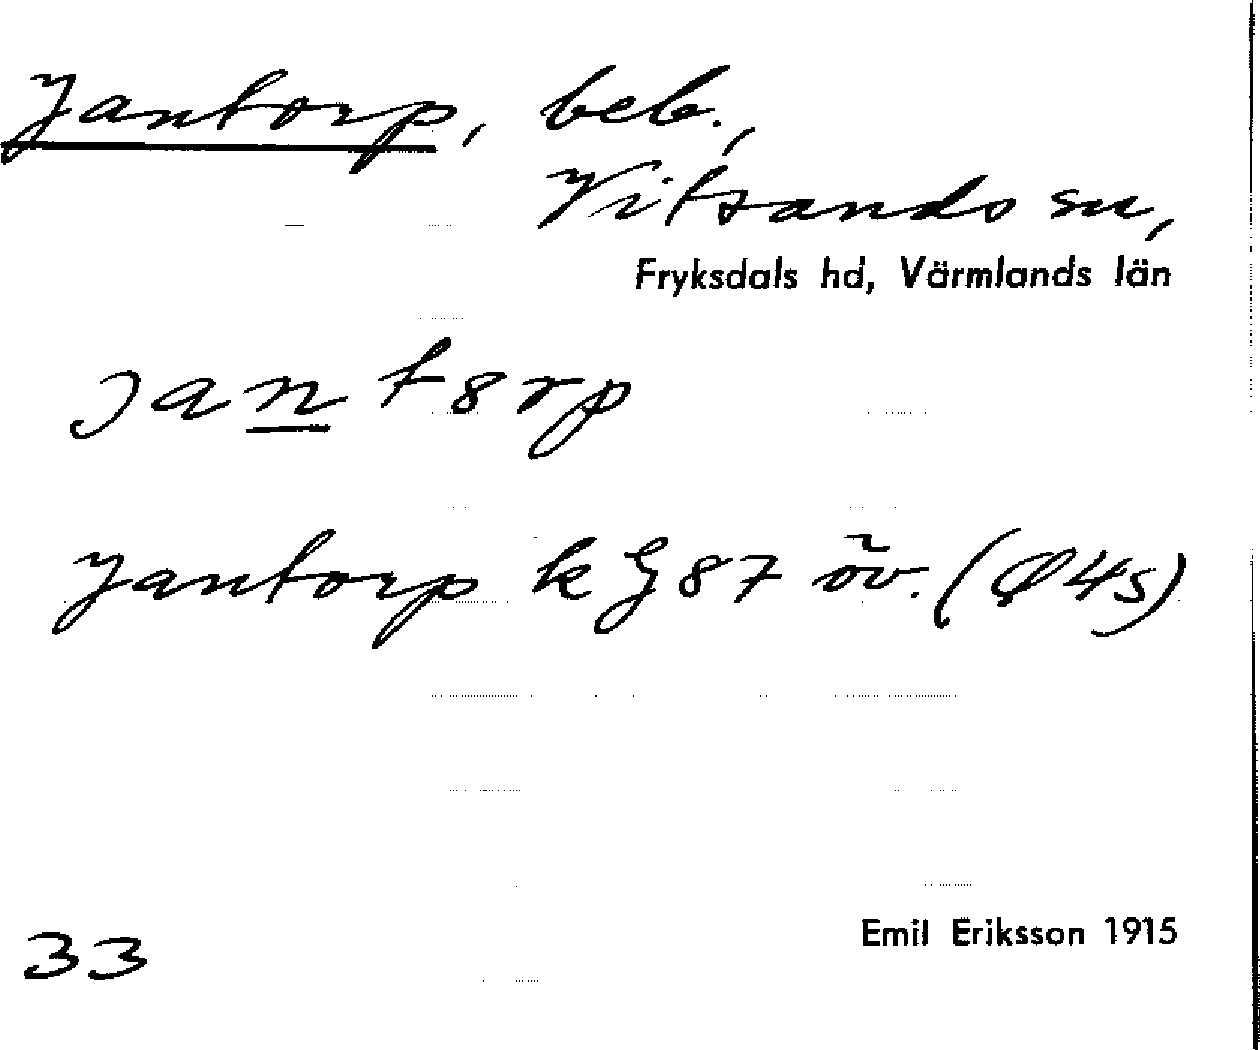 Jantorp, beb.,
Vitsands sn,
Fryksdals hd, Värmlands län
jantorp
Jantorp k G 87 öv. (Ø4s)
33
Emil Eriksson 1915